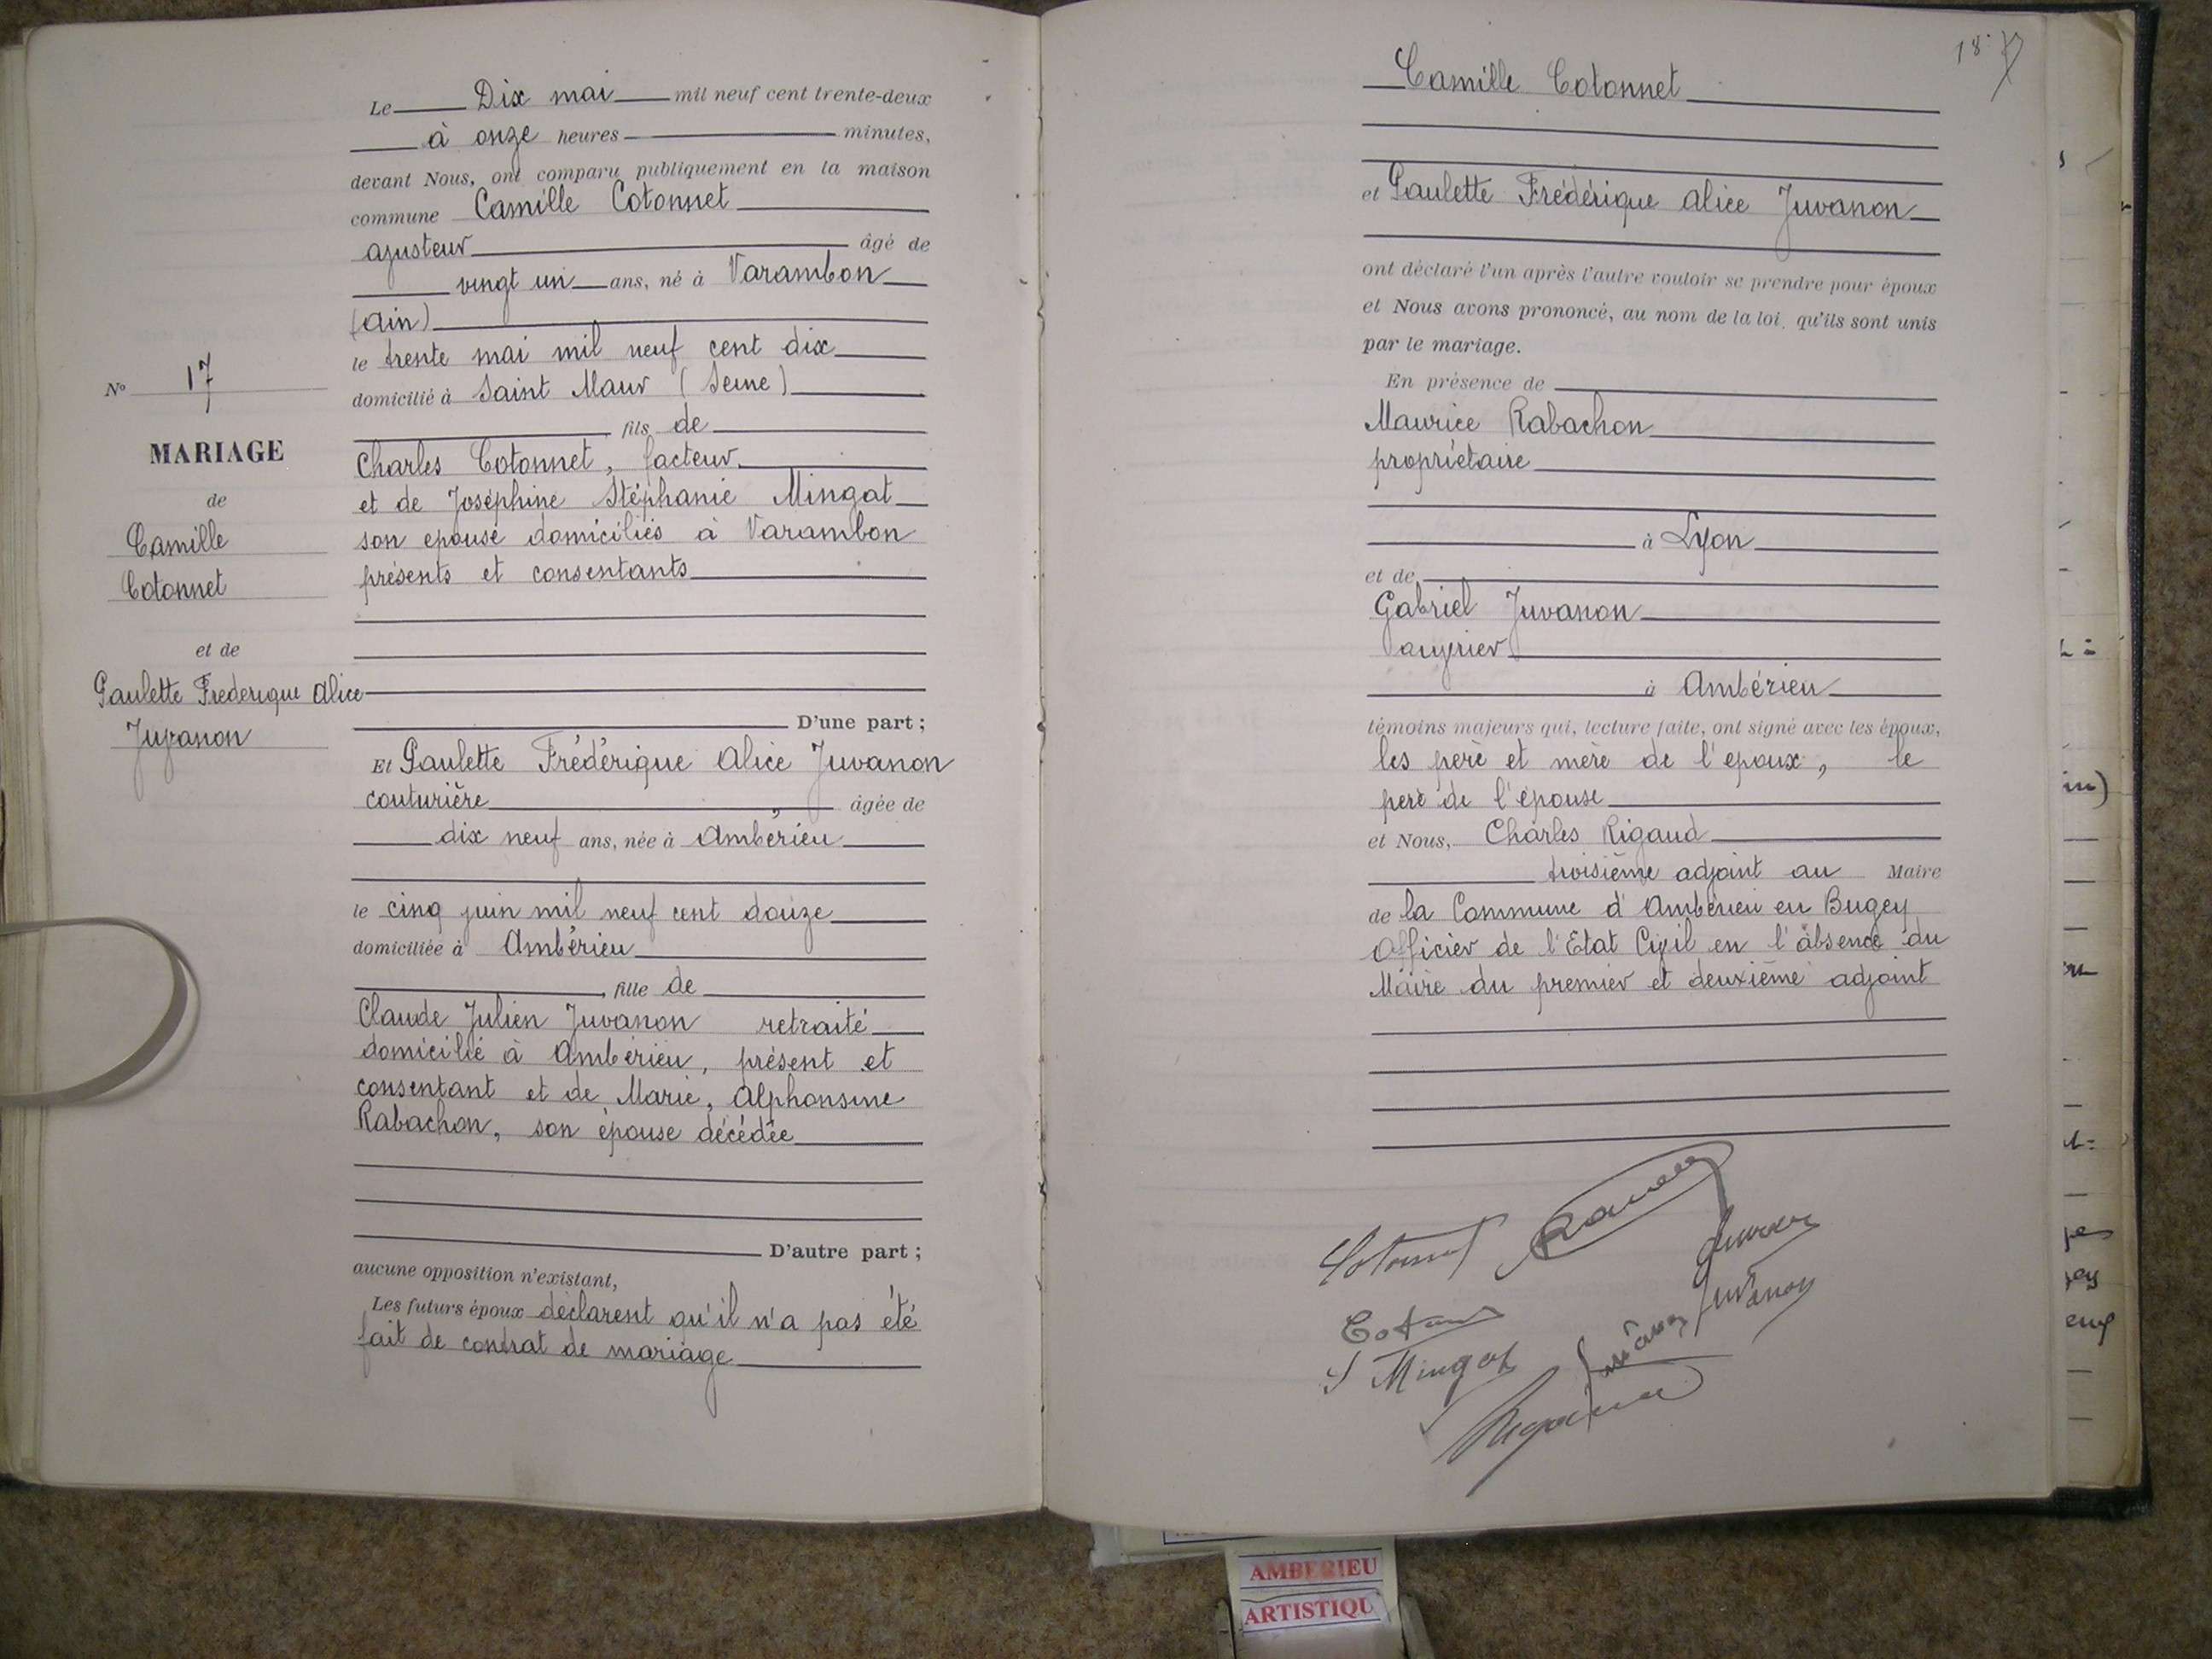 Le Dix mai mil neuf cent trente-deux
à onze heures minutes,
devant Nous, ont comparu publiquement en la maison
commune Camille Cotonnet
ajusteur âgé de
vingt un ans, né à Varambon
(Ain)
le trente mai mil neuf cent dix
domicilié à Saint Maur (Seine)
fils de
Charles Cotonnet, facteur
et de Joséphine Stéphanie Mingat
son epouse domiciliés à Varambon
présents et consentants
D'une part ;
N° 17
MARIAGE
de
Camille
Cotonnet
et de
Paulette Frederique Alice
Juvanon
Et Paulette Frédérique Alice Juvanon
couturière âgée de
dix neuf ans, née à Ambérieu
le cinq juin mil neuf cent douze
domiciliée à Ambérieu
fille de
Claude Julien Juvanon retraité
domicilié à Ambérieu, présent et
consentant et de Marie, Alphonsine
Rabachon, son épouse décédée
D'autre part ;
aucune opposition n'existant,
Les futurs époux déclarent qu'il n'a pas été
fait de contrat de mariage
18
Camille Cotonnet
et Paulette Frédérique Alice Juvanon
ont déclaré l'un après l'autre vouloir se prendre pour époux
et Nous avons prononcé, au nom de la loi, qu'ils sont unis
par le mariage.
En présence de
Maurice Rabachon
propriétaire
à Lyon
et de
Gabriel Juvanon
à Ambérieu
témoins majeurs qui, lecture faite, ont signé avec les époux,
les père et mère de l'epoux, le
père de l'épouse
et Nous, Charles Rigaud
troisième adjoint au Maire
de la Commune d'Ambérieu en Bugey
Officier de l'Etat Civil en l'absence du
Maire du premier et deuxième adjoint
Cotonnet
Juvanon
S Mingat
AMBERIEU
ARTISTIQU